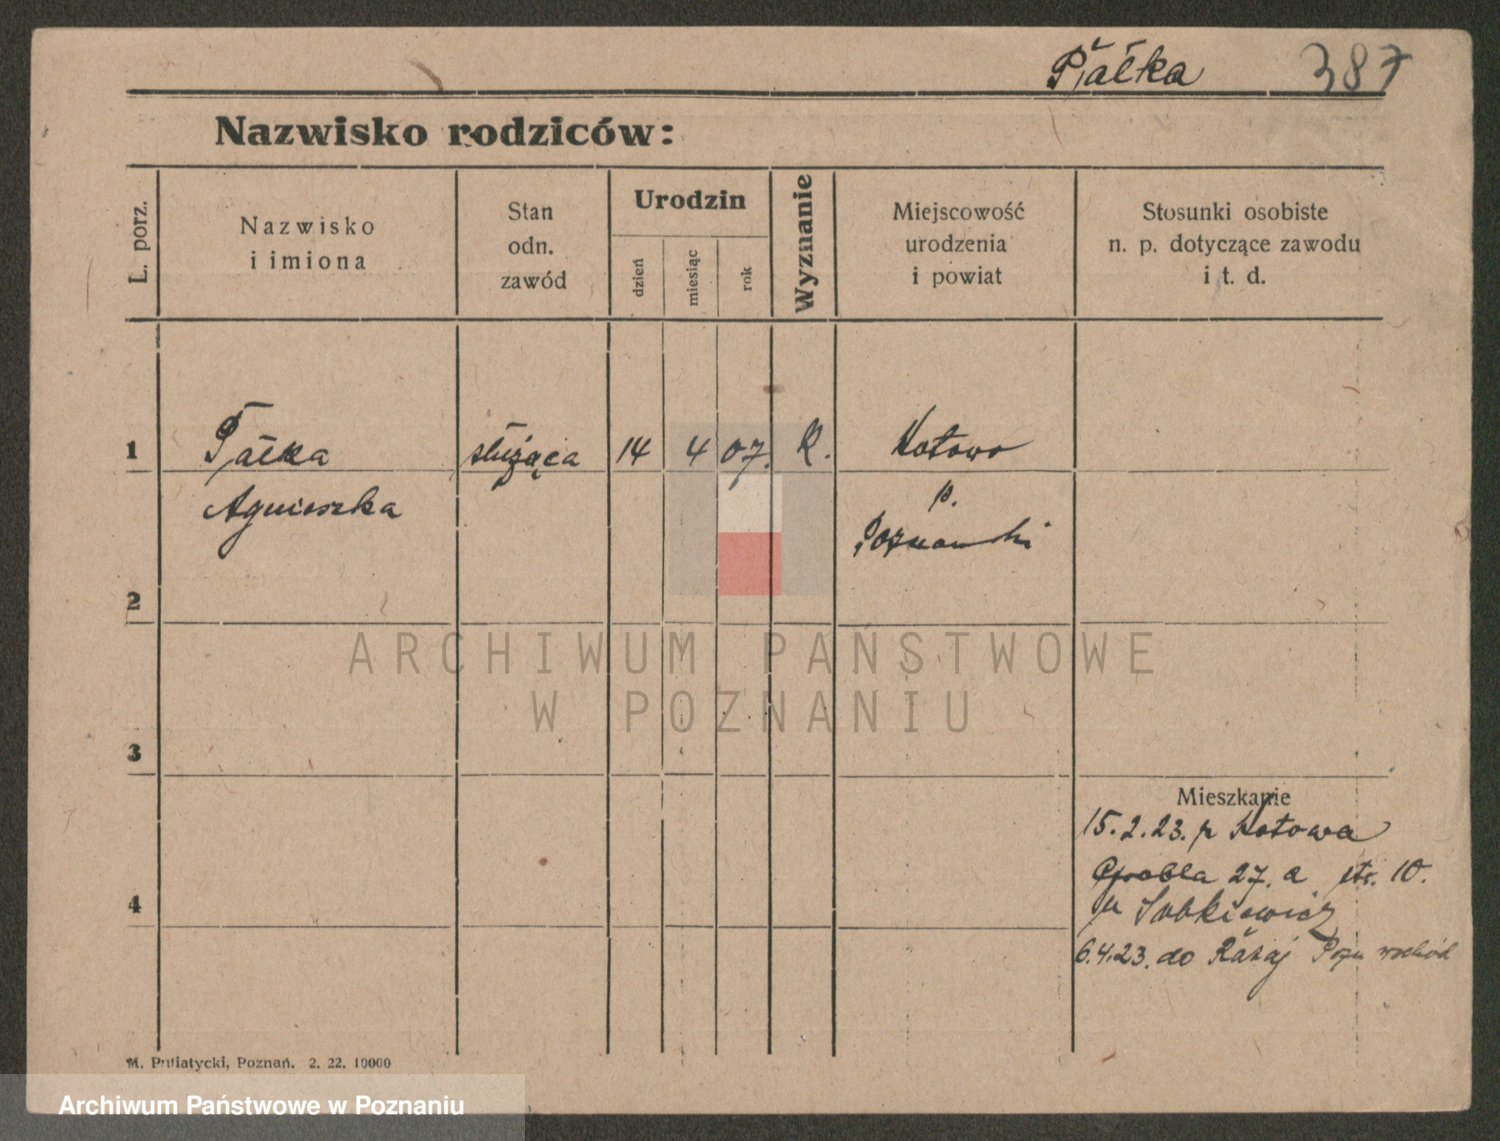 Pałka 387
Nazwisko rodziców:
L. porz.
Nazwisko
i imiona
Stan
odn.
zawód
Urodzin
dzień
miesiąc
rok
Wyznanie
Miejscowość
urodzenia
i powiat
Stosunki osobiste
n. p. dotyczące zawodu
i t. d.
1 Pałka służąca 14 4 07. R. Kotowo
Agnieszka
p.
Poznański
2
3
4
Mieszkanie
15.2.23. p Kotowa
Grobla 27. a str. 10.
u Sobkiewicz
6.4.23. do Pozn wschód
M. Putiatycki, Poznań. 2. 22. 10000
ARCHIWUM PAŃSTWOWE
W POZNANIU
Archiwum Państwowe w Poznaniu